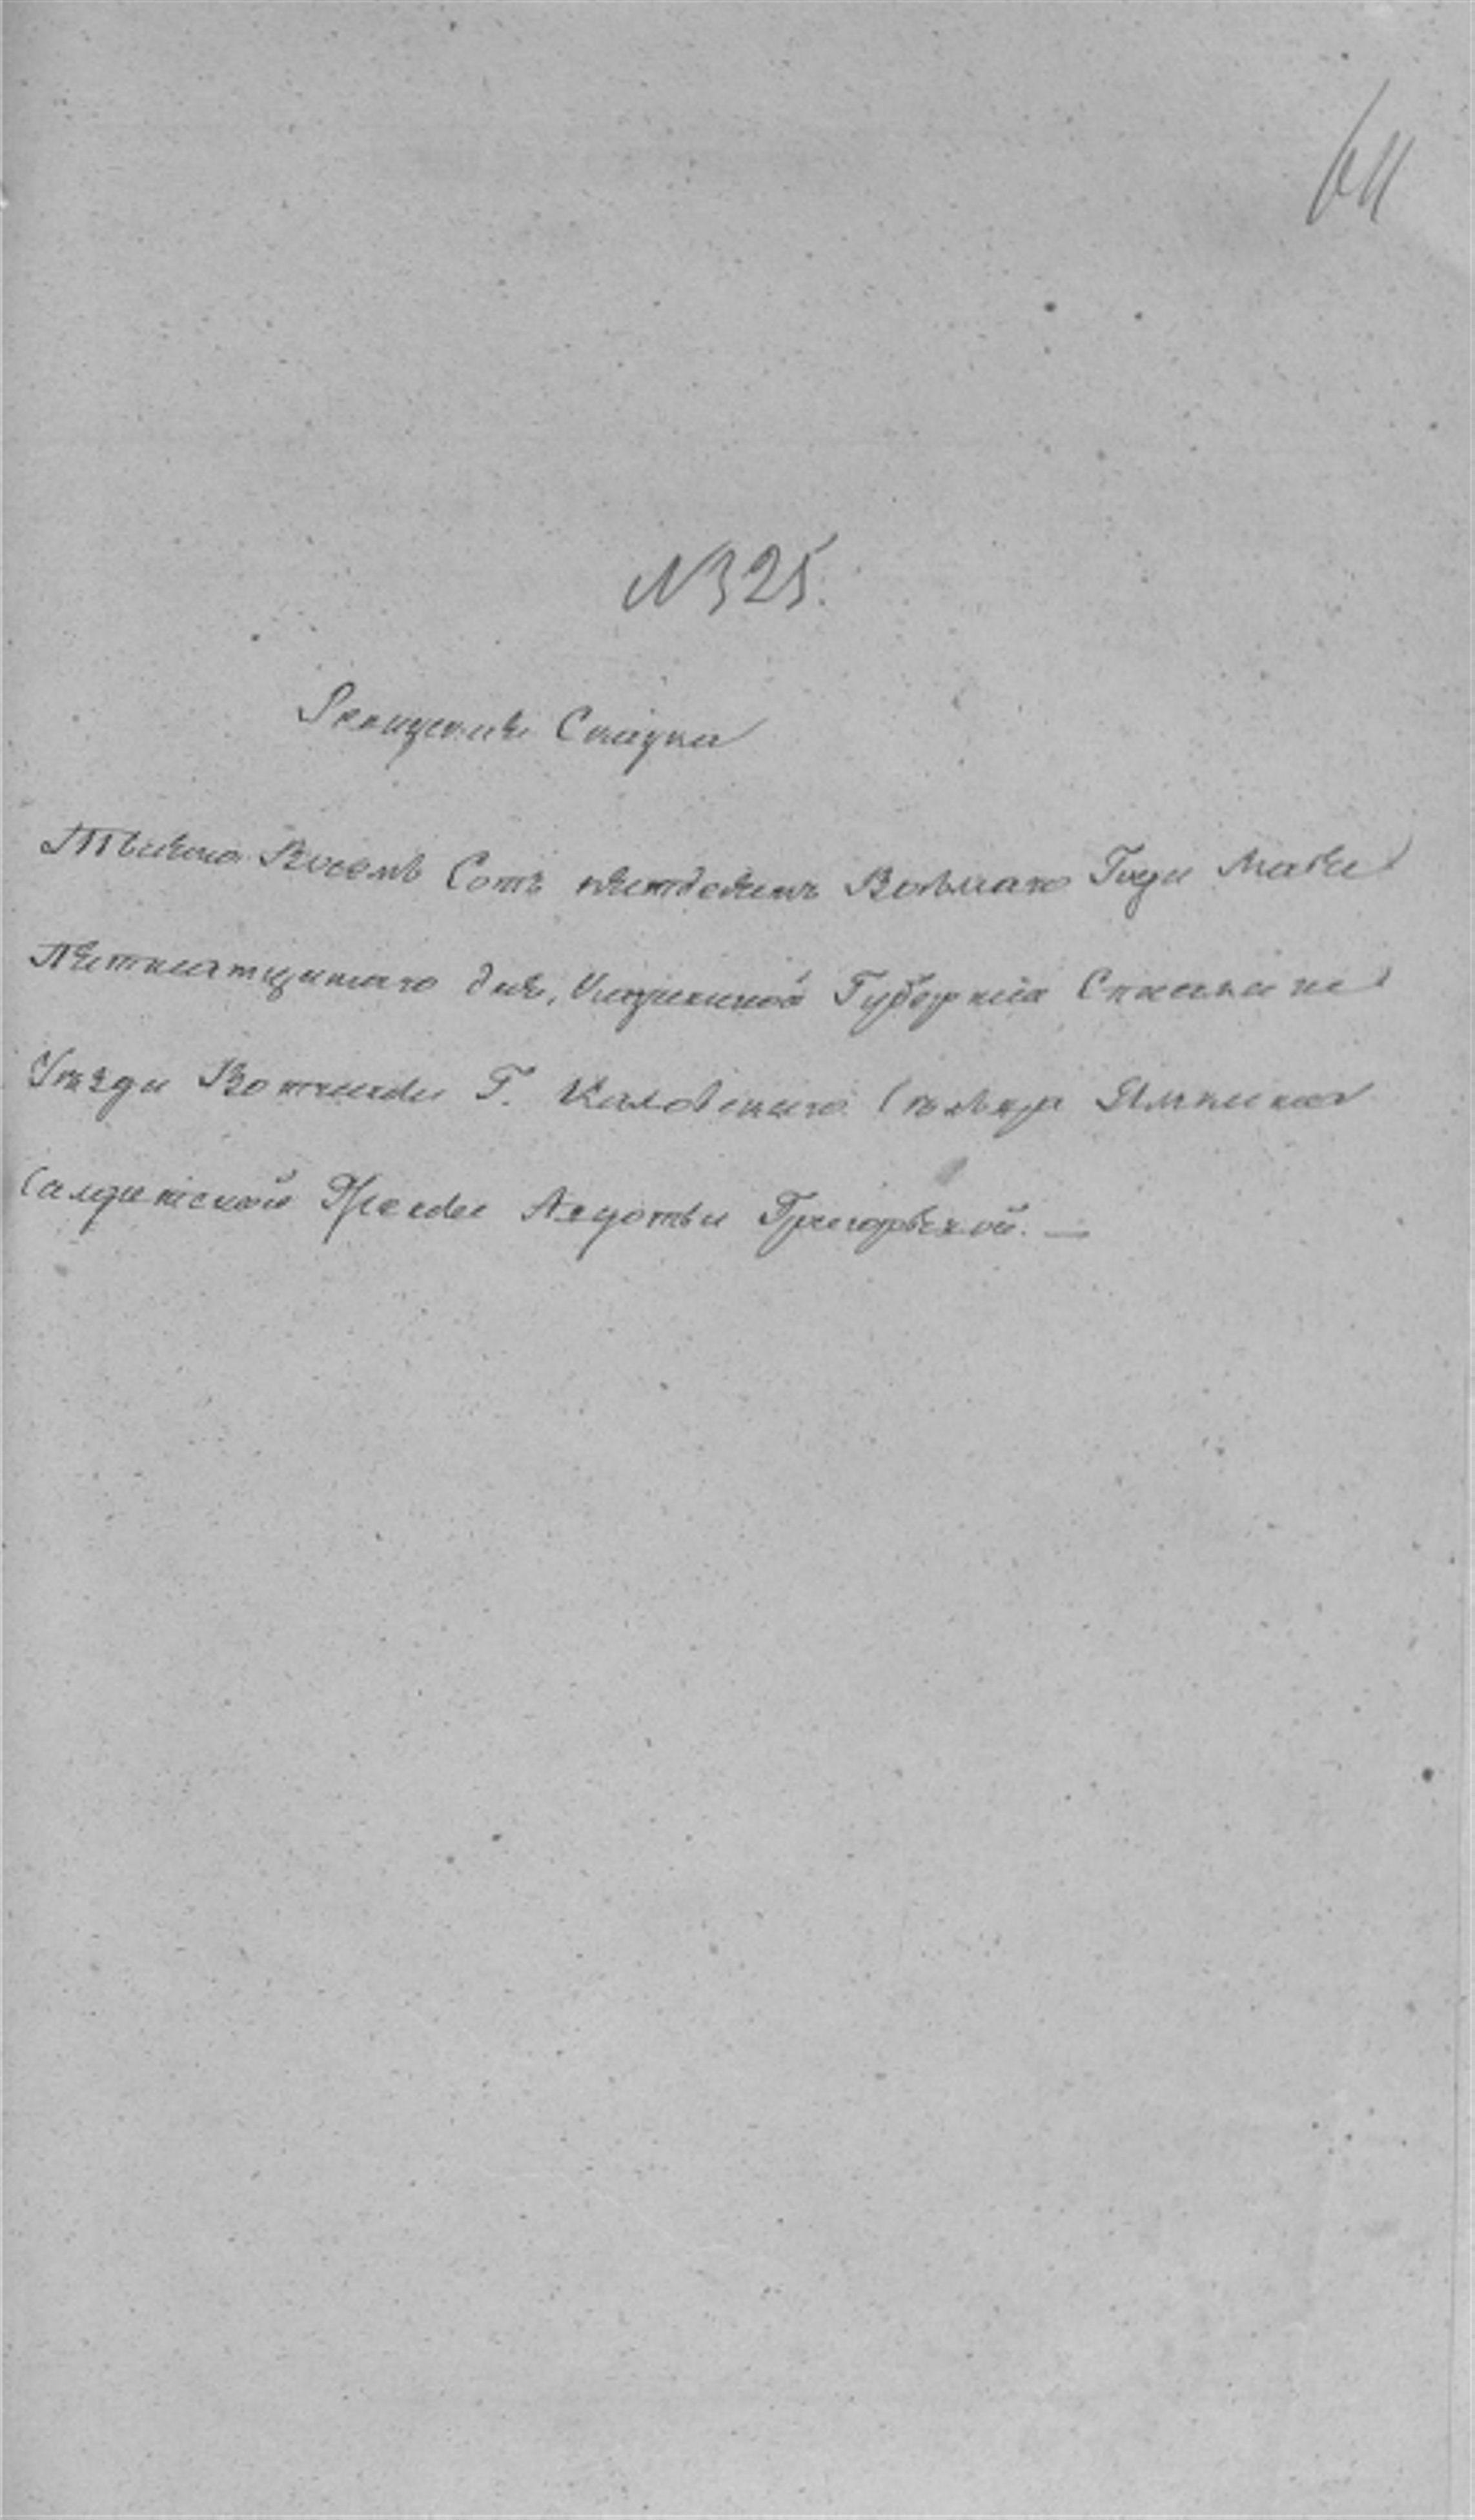 № 325.
Ревизская Сказка
Тысяча Восемь Сотъ пятдесятъ Восьмаго Года Маія
Пятнатцатаго дня, Казанской Губерніи Спаскаго
Уѣзда Вотчины Г.
Солдатской Жены Авдотьи Григорьевой. —